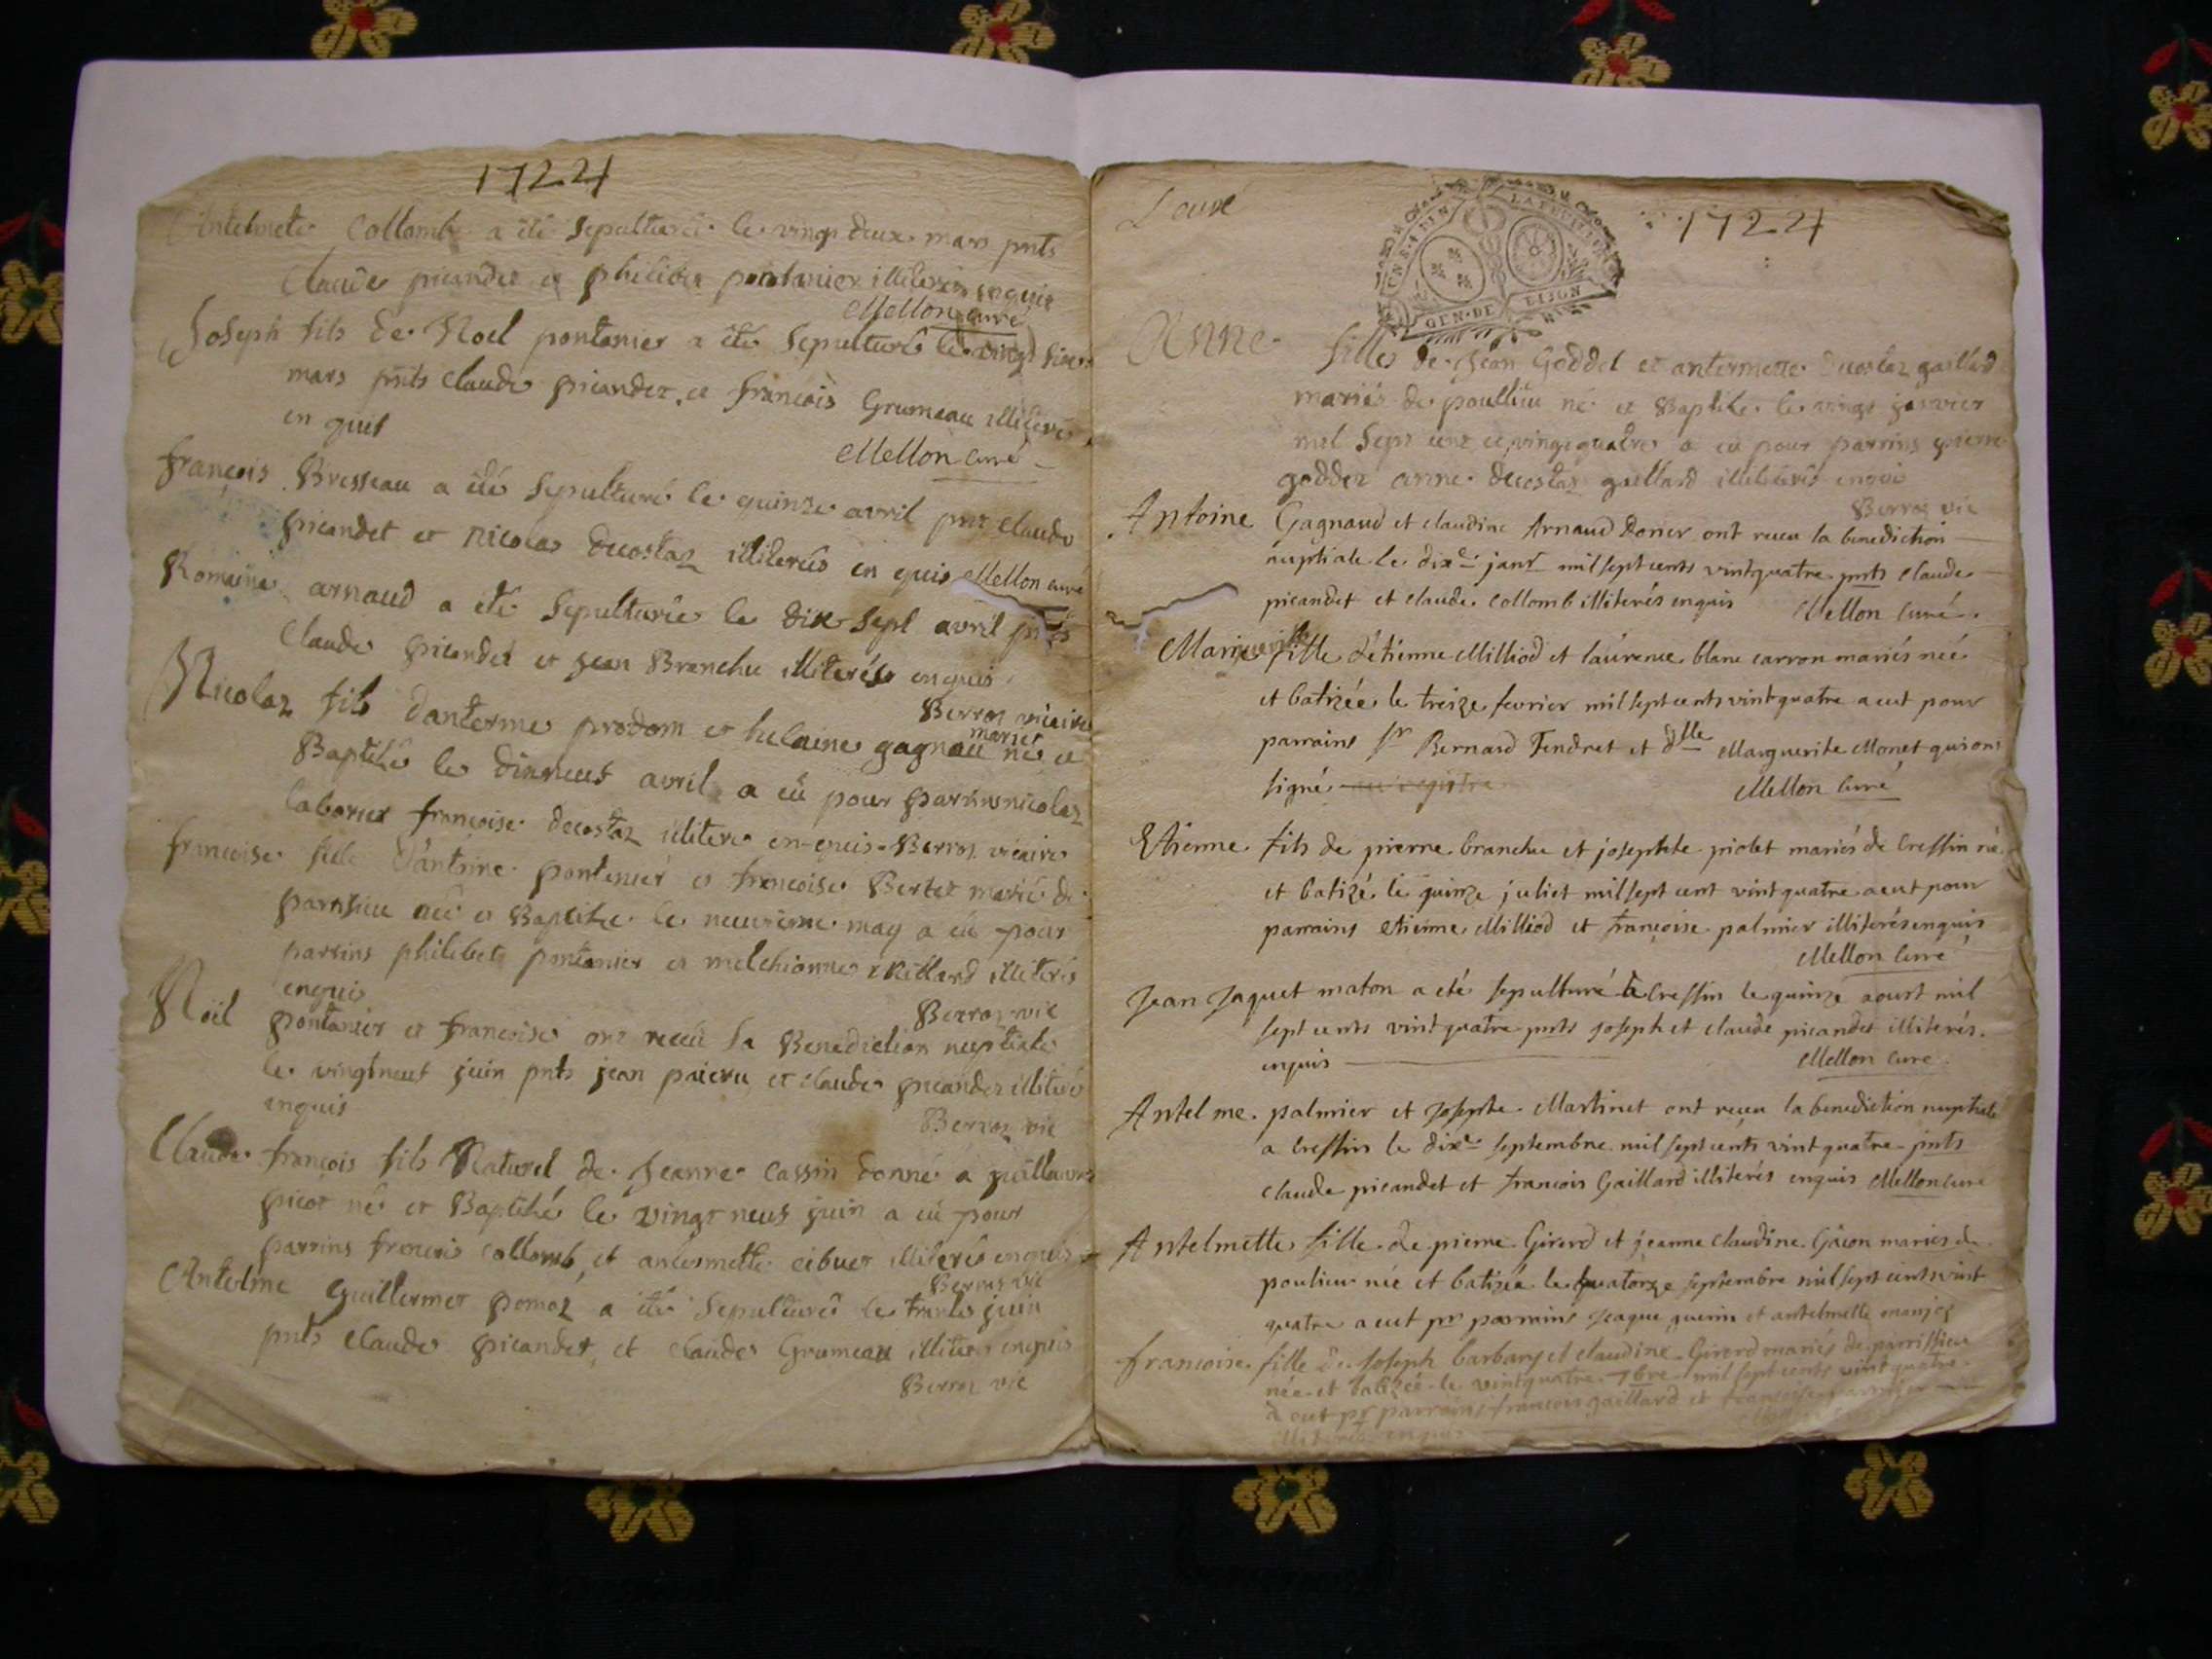 1724
Antelmete Collomb a été sepulturée le vingt deux mars pnts
Claude picandet et philibert pontanier illiterés enquis
Mellon curé
Joseph fils de Noel pontanier a été sepulturé le vingt six
mars pnts Claude picandet et francois Grumeau illiterés
en quis
Mellon curé
françois Bresseau a été sepulturé le quinze avril pnt claude
picandet et nicolas decostaz illiterés en quis Mellon curé
Romaine arnaud a été sepulturée le dix sept avril pnts
Claude picandet et jean Branchu illiterés enquis
Berroz vicaire
Nicolaz fils danterme prodom et helaine gagnau mariés né et
Baptisé le dixneuf avril a eü pour parrins nicolaz
francoise decostaz illiteré en-quis Berroz vicaire
francoise fille d'antoine pontanier et francoise Bertet marié de
parissieu née et Baptisée le neuvieme may a eü pour
parrins philibert pontanier et melchionne illiterés
enquis
Berroz vic
Noël pontanier et francoise ont receü la Benediction nuptiale
le vingtneuf juin pnts jean et claude picandet illiteré
enquis
Berroz vic
Claude francois fils Naturel de Jeanne Cassin donné a guillaume
picot né et Baptisé le vingt neuf juin a eü pour
parrins francois collomb et antermette cibuet illiterés enquis
Berroz vic
Antelme Guillermet pomaz a été sepulturé le trante juin
pnts Claude picandet et claude Grumeau illiterés enquis
Berroz vic
1724
GEN·DE DIJON
Anne fille de Jean Goddet et antermette Decostaz gaillard
mariés de poullieu né et Baptisée le vingt janvier
mil sept cent et vingt quatre a eü pour parrins pierre
goddet anne decostaz gaillard illiterés enquis
Berroz vic
Antoine Gagnaud et claudine Arnaud Donier ont receu la benediction
nuptiale le dixe janr mil sept cents vint quatre pnts claude
picandet et claude collomb illiterés enquis Mellon curé
Marie fille d'étienne Milliod et laurence blanc carron mariés née
et batizée le treize fevrier mil sept cents vint quatre a eut pour
parrains sr Bernard Tendret et dlle Marguerite Monet qui ont
signé au registre
Mellon curé
Etienne fils de pierre branchu et josephte piolet mariés de Cressin né
et batizé le quinze juliet mil sept cent vint quatre a eut pour
parrains etienne Milliod et francoise palmier illiterés enquis
Mellon curé
Jean Jaquet maton a eté sepulturé a Cressin le quinze aoust mil
sept cents vint quatre pnts joseph et claude picandet illiterés
enquis Mellon curé
Antelme palmier et Josephte Martinet ont receu la benediction nuptiale
a Cressin le dixe septembre mil sept cents vint quatre pnts
claude picandet et francois Gaillard illiterés enquis Mellon curé
Antelmette fille de pierre Girerd et jeanne claudine Gacon mariés de
poulieu née et batizée le quatorze septembre mil sept cents vint
quatre a eut pr parrains Jaque guerin et antelmette
francoise fille de Joseph barbary et claudine Girerd mariés de parrissieu
née et batizée le vint quatre 7bre mil sept cents vint quatre
a eut pr parrains francois gaillard et francoise
illiterés enquis